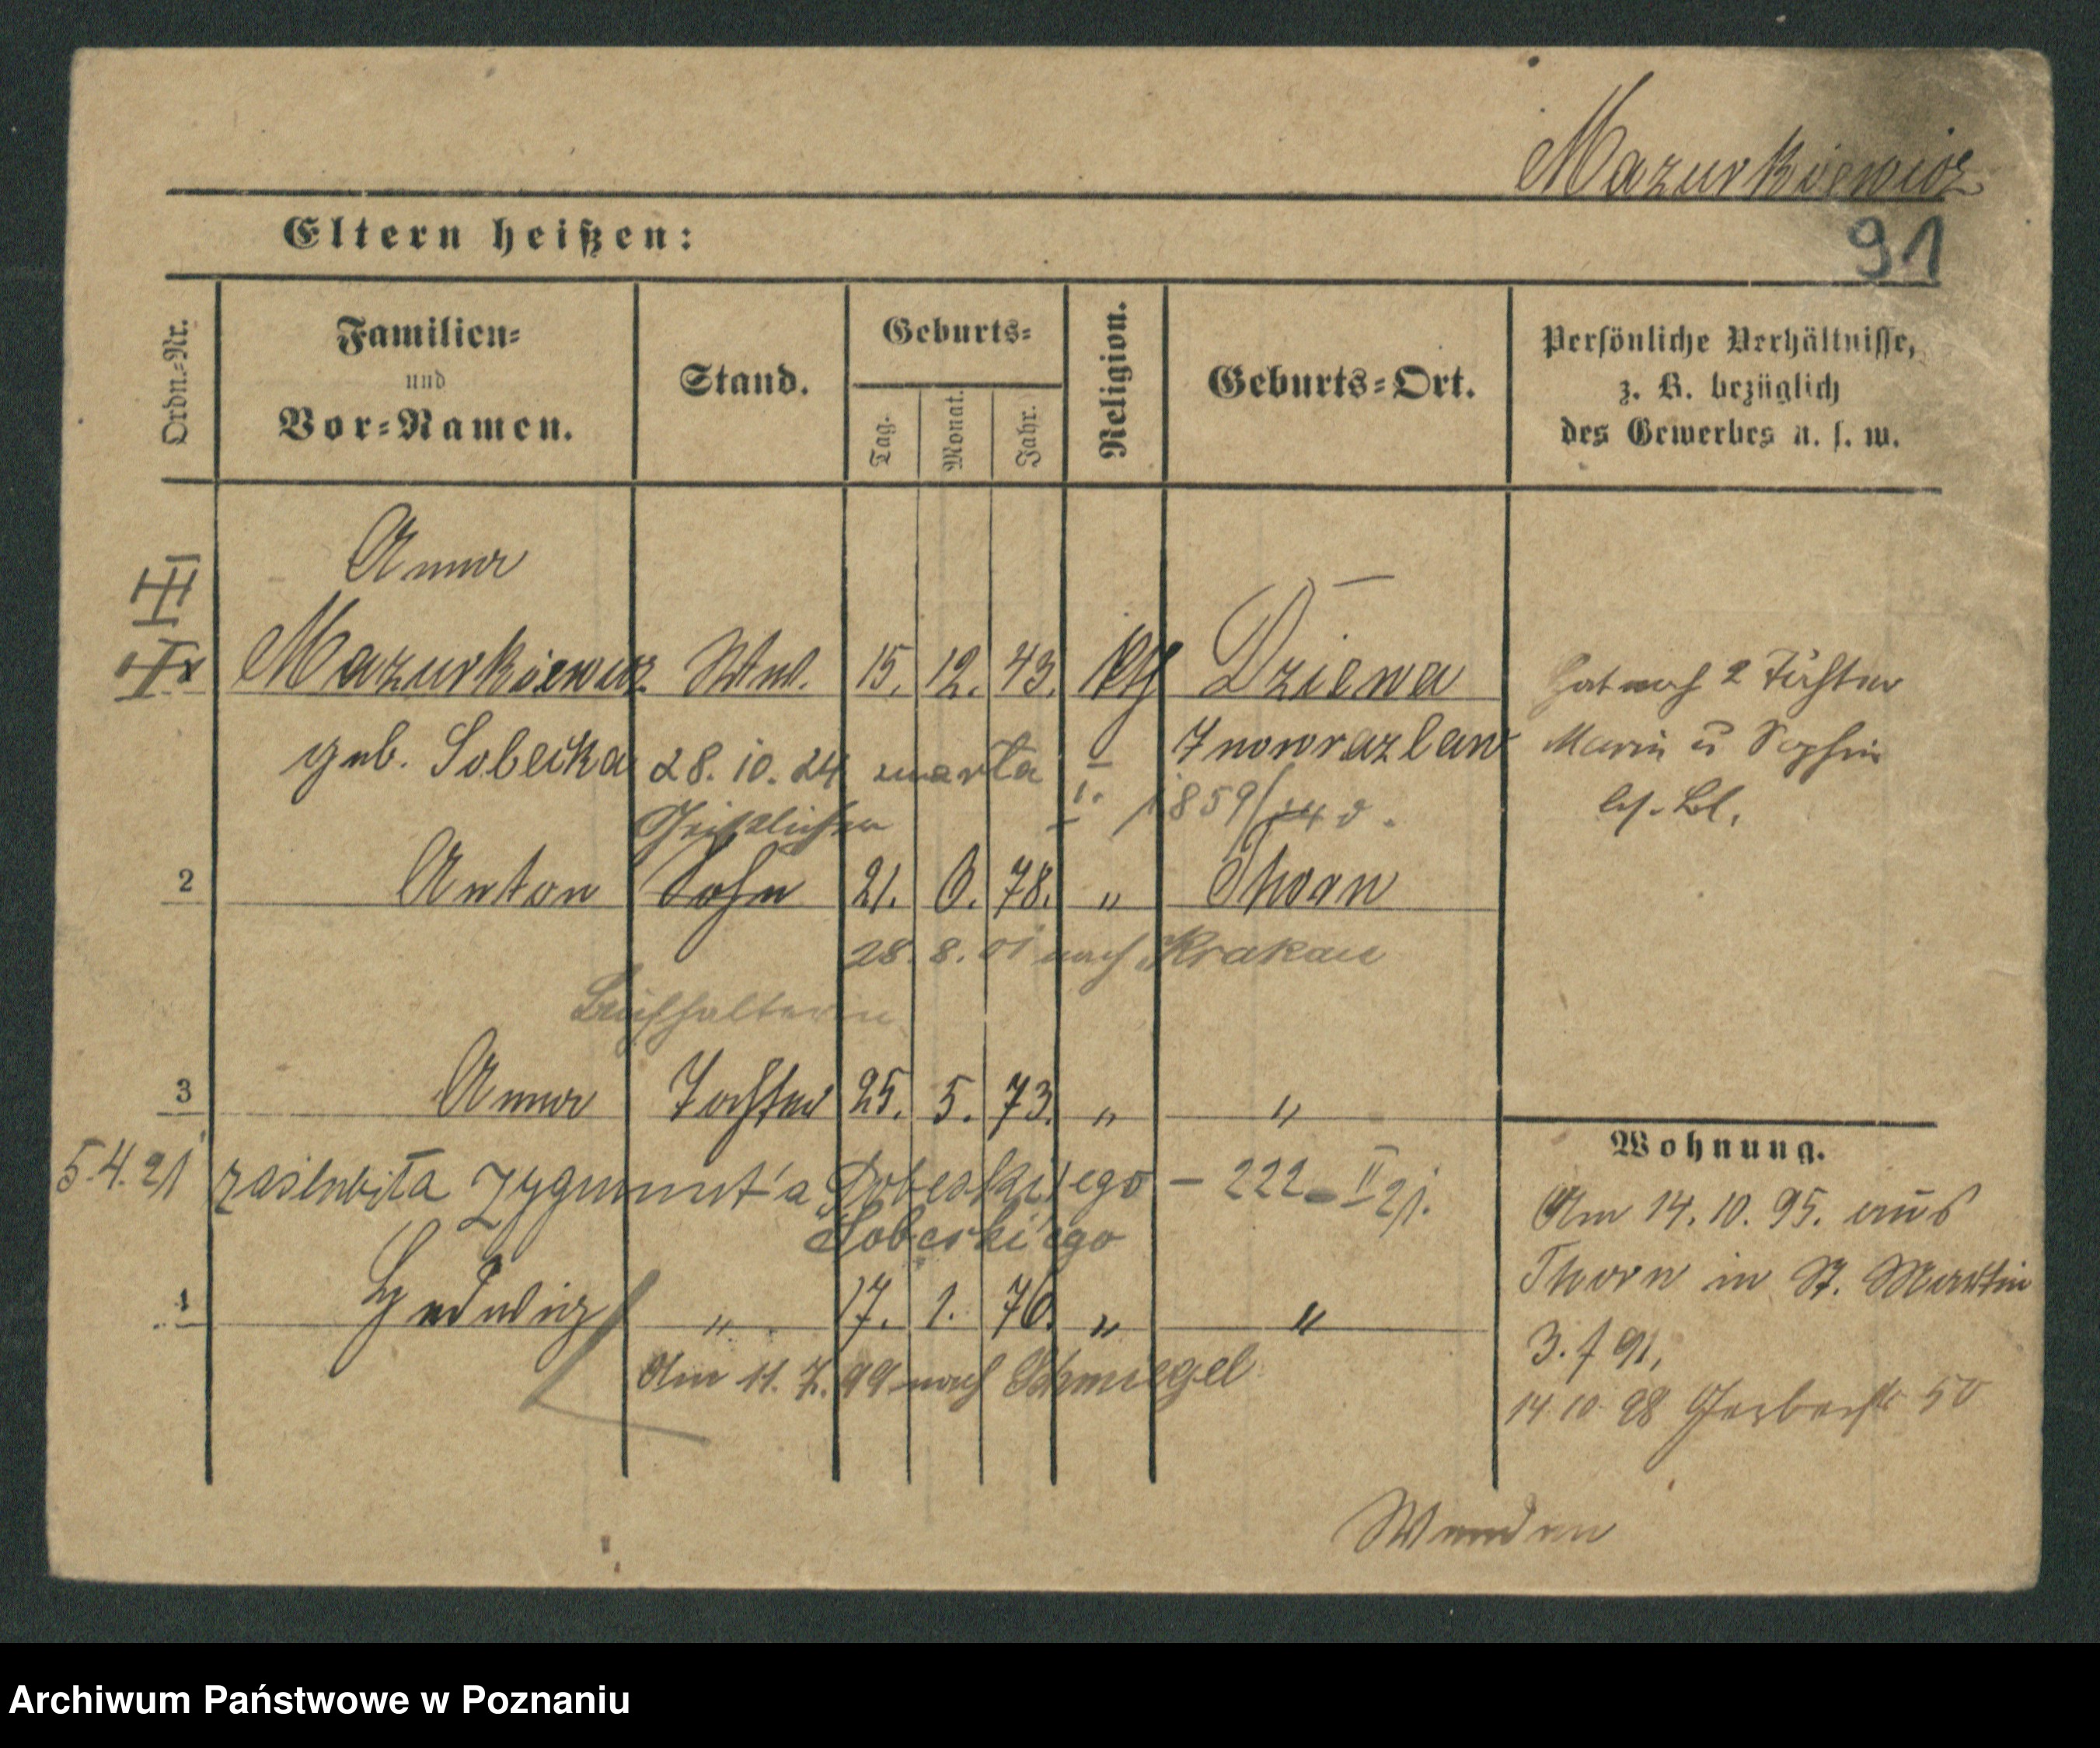 Mazurkiewicz
91
Eltern heißen:
Ordn.-Nr.
Familien-
und
Vor-Namen.
Stand.
Geburts-
Tag.
Monat.
Jahr.
Religion.
Geburts-Ort.
Persönliche Verhältnisse,
z. B. bezüglich
des Gewerbes u. s. w.
Anna
Mazurkiewicz Wtw. 15. 12. 43. kth Dziewa
geb. Sobecka 28.10.24 zmarła Inowrazlaw
1859/
Geistlicher
2 Anton Sohn 21. 6. 78. " Thorn
28.8.01 nach Krakau
Buchhalterin
3 Anna Tochter 25. 5. 73. " "
5.4.21 zaślubiła Zygmunt'a - 222 - II 21.
Sobeski'ego
Hedwig " 17. 1. 76. " "
Am 11.7.99 nach Schmiegel
Hat noch 2 Töchter
Marie u Sophie
bes. Bl.
Wohnung.
Am 14.10.95. aus
Thorn in St. Martin
14 10 98 Gerberstr 50
Wenden
Archiwum Państwowe w Poznaniu